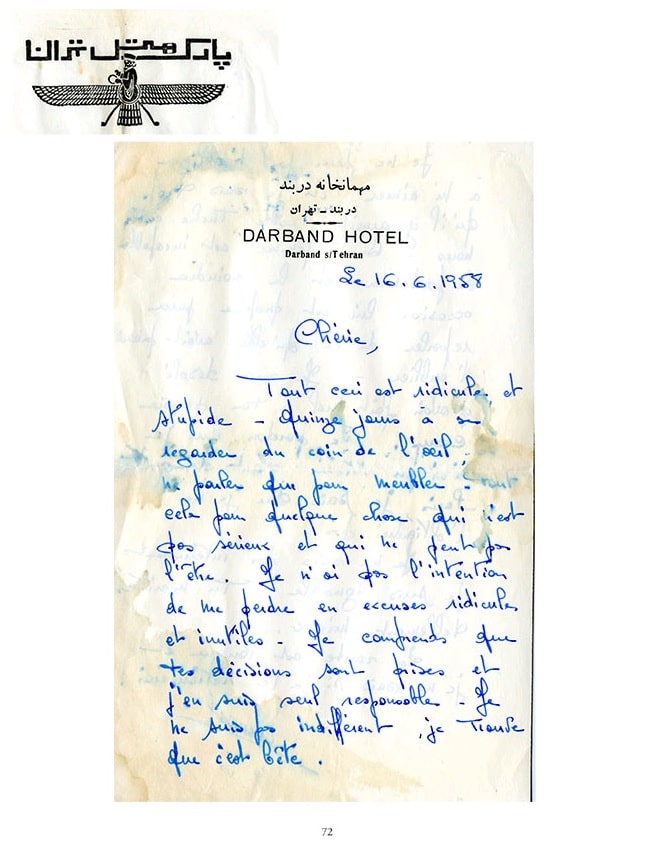 پارک هتل تهران
مهمانخانه دربند
دربند - تهران
DARBAND HOTEL
Darband s/Tehran
Le 16.6.1958
Chérie,
Tout ceci est ridicule et
stupide - Quinze jours à se
regarder du coin de l'œil -
ne parler que pour meubler - tout
cela pour quelque chose qui n'est
pas sérieux et qui ne peut pas
l'être. Je n'ai pas l'intention
de me perdre en excuses ridicules
et inutiles - Je comprends que
tes décisions sont prises et
j'en suis seul responsable - Je
ne suis pas indifférent, je trouve
que c'est bête.
72